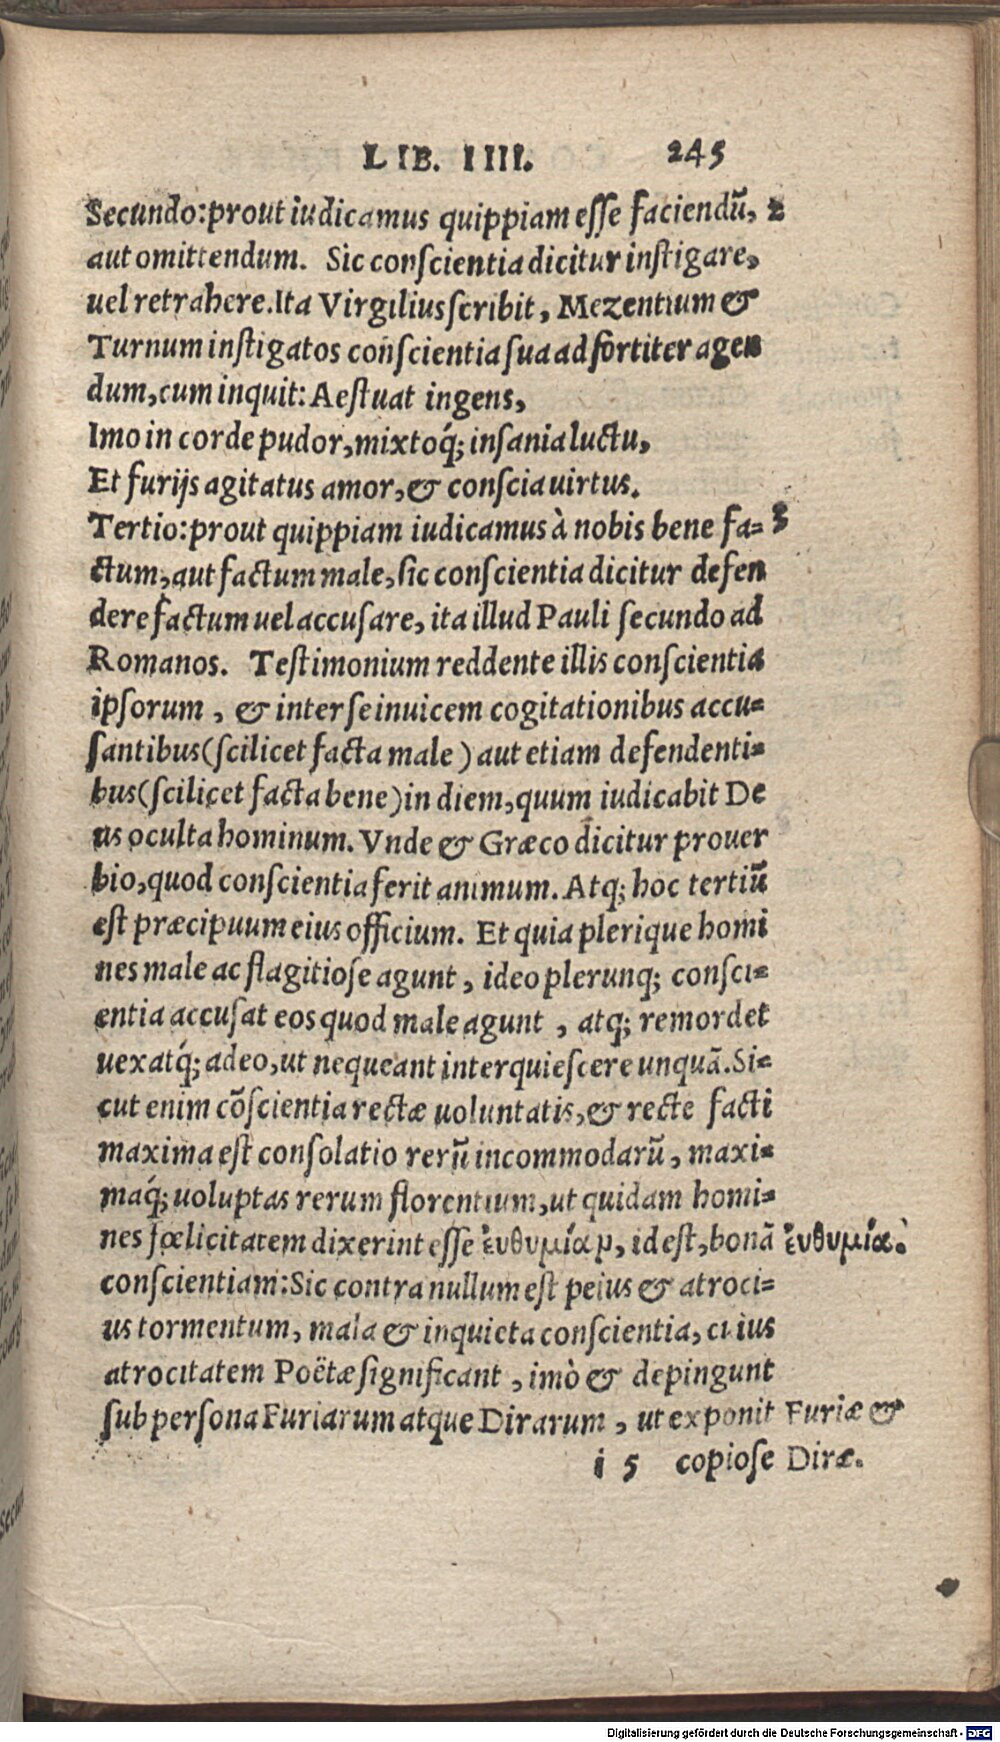 LIB. IIII. 245
Secundo: prout iudicamus quippiam esse faciendū, 2
aut omittendum. Sic conscientia dicitur instigare,
uel retrahere. Ita Virgilius scribit, Mezentium &
Turnum instigatos conscientia sua ad fortiter agen
dum, cum inquit: Aestuat ingens,
Imo in corde pudor, mixtoq́; insania luctu,
Et furijs agitatus amor, & conscia uirtus.
Tertio: prout quippiam iudicamus à nobis bene fa= 3
ctum, aut factum male, sic conscientia dicitur defen
dere factum uel accusare, ita illud Pauli secundo ad
Romanos. Testimonium reddente illis conscientia
ipsorum, & inter se inuicem cogitationibus accu=
santibus (scilicet facta male) aut etiam defendenti=
bus (scilicet facta bene) in diem, quum iudicabit De
us oculta hominum. Vnde & Græco dicitur prouer
bio, quod conscientia ferit animum. Atq; hoc tertiū
est præcipuum eius officium. Et quia plerique homi
nes male ac flagitiose agunt, ideo plerunq; consci=
entia accusat eos quod male agunt, atq; remordet
uexatq́; adeo, ut nequeant interquiescere unquā. Si=
cut enim cōscientia rectæ uoluntatis, & recte facti
maxima est consolatio rerū incommodarū, maxi=
maq́; uoluptas rerum florentium, ut quidam homi=
nes fœlicitatem dixerint esse ἐυθυμίαν, id est, bonā ἐυθυμία.
conscientiam: Sic contra nullum est peius & atroci=
us tormentum, mala & inquieta conscientia, cuius
atrocitatem Poëtæ significant, imò & depingunt
sub persona Furiarum atque Dirarum, ut exponit Furiæ &
i 5 copiose Diræ.
Digitalisierung gefördert durch die Deutsche Forschungsgemeinschaft - DFG